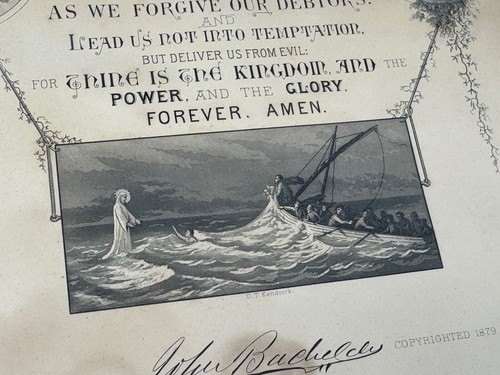 AS WE FORGIVE OUR DEBTORS.
AND
LEAD US NOT INTO TEMPTATION,
BUT DELIVER US FROM EVIL:
FOR THINE IS THE KINGDOM, AND THE
POWER, AND THE GLORY,
FOREVER. AMEN.
D.T. Kendrick.
John Bachelder
COPYRIGHTED 1879